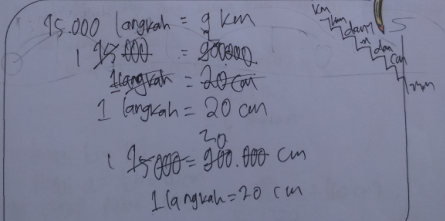 45.000 langkah = 9 km
1 45.000 = 900.000
1 langkah = 20 cm
1 langkah = 20 cm
20
1 45.000 = 900.000 cm
1 langkah = 20 cm
km
hm
dam
m
dm
cm
mm